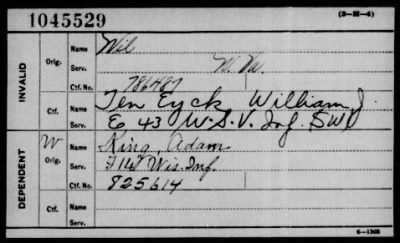 1045529 (3-M-4)
INVALID
Orig. Name Wil
Serv. W. Va.
Ctf. No. 786487
Ctf. Name Ten Eyck William J.
Serv. E 43 W.S.V. Inf. SW
DEPENDENT
W Orig. Name King, Adam
Serv. 14 Wis. Inf.
Ctf. No. 825614
Ctf. Name
Serv.